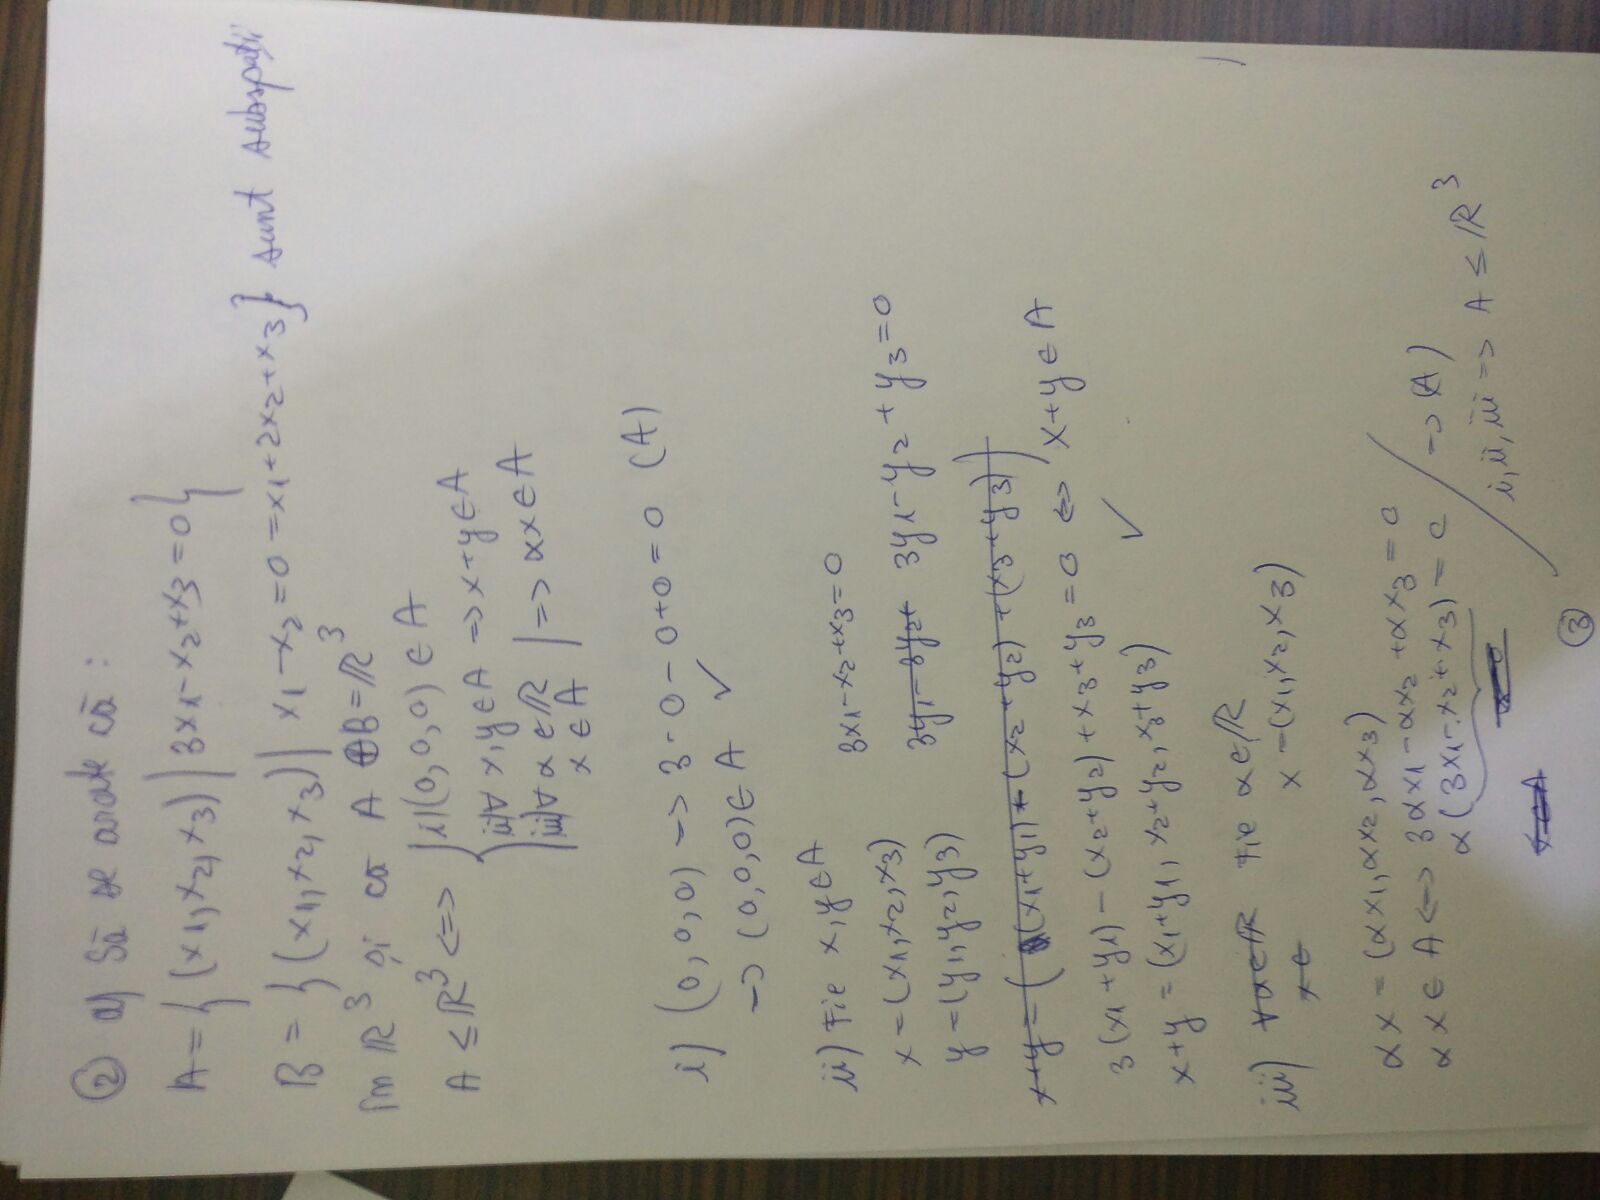 ② a) Să se arate că :
A = { (x1, x2, x3) | 3x1 - x2 + x3 = 0 {
B = { (x1, x2, x3) | x1 - x2 = 0 = x1 + 2x2 + x3 } sunt subspații
în ℝ³ și că A ⊕ B = ℝ³
A ≤ ℝ³ <=> { i) (0, 0, 0) ∈ A
ii) ∀ x, y ∈ A => x + y ∈ A
iii) ∀ α ∈ ℝ | => αx ∈ A
x ∈ A
i) (0, 0, 0) -> 3 · 0 - 0 + 0 = 0 (A)
-> (0, 0, 0) ∈ A ✓
ii) Fie x, y ∈ A
3x1 - x2 + x3 = 0
x = (x1, x2, x3)
3y1 - 3y2 + 3y1 - y2 + y3 = 0
y = (y1, y2, y3)
x + y = ( (x1 + y1) - (x2 + y2) + (x3 + y3) )
3(x1 + y1) - (x2 + y2) + x3 + y3 = 0 <=> x + y ∈ A
x + y = (x1 + y1, x2 + y2, x3 + y3) ✓
iii) ∀ α ∈ ℝ Fie α ∈ ℝ
x ∈ x = (x1, x2, x3)
αx = (αx1, αx2, αx3)
αx ∈ A <=> 3αx1 - αx2 + αx3 = 0
α (3x1 - x2 + x3) = 0 -> (A)
i, ii, iii => A ≤ ℝ³
③